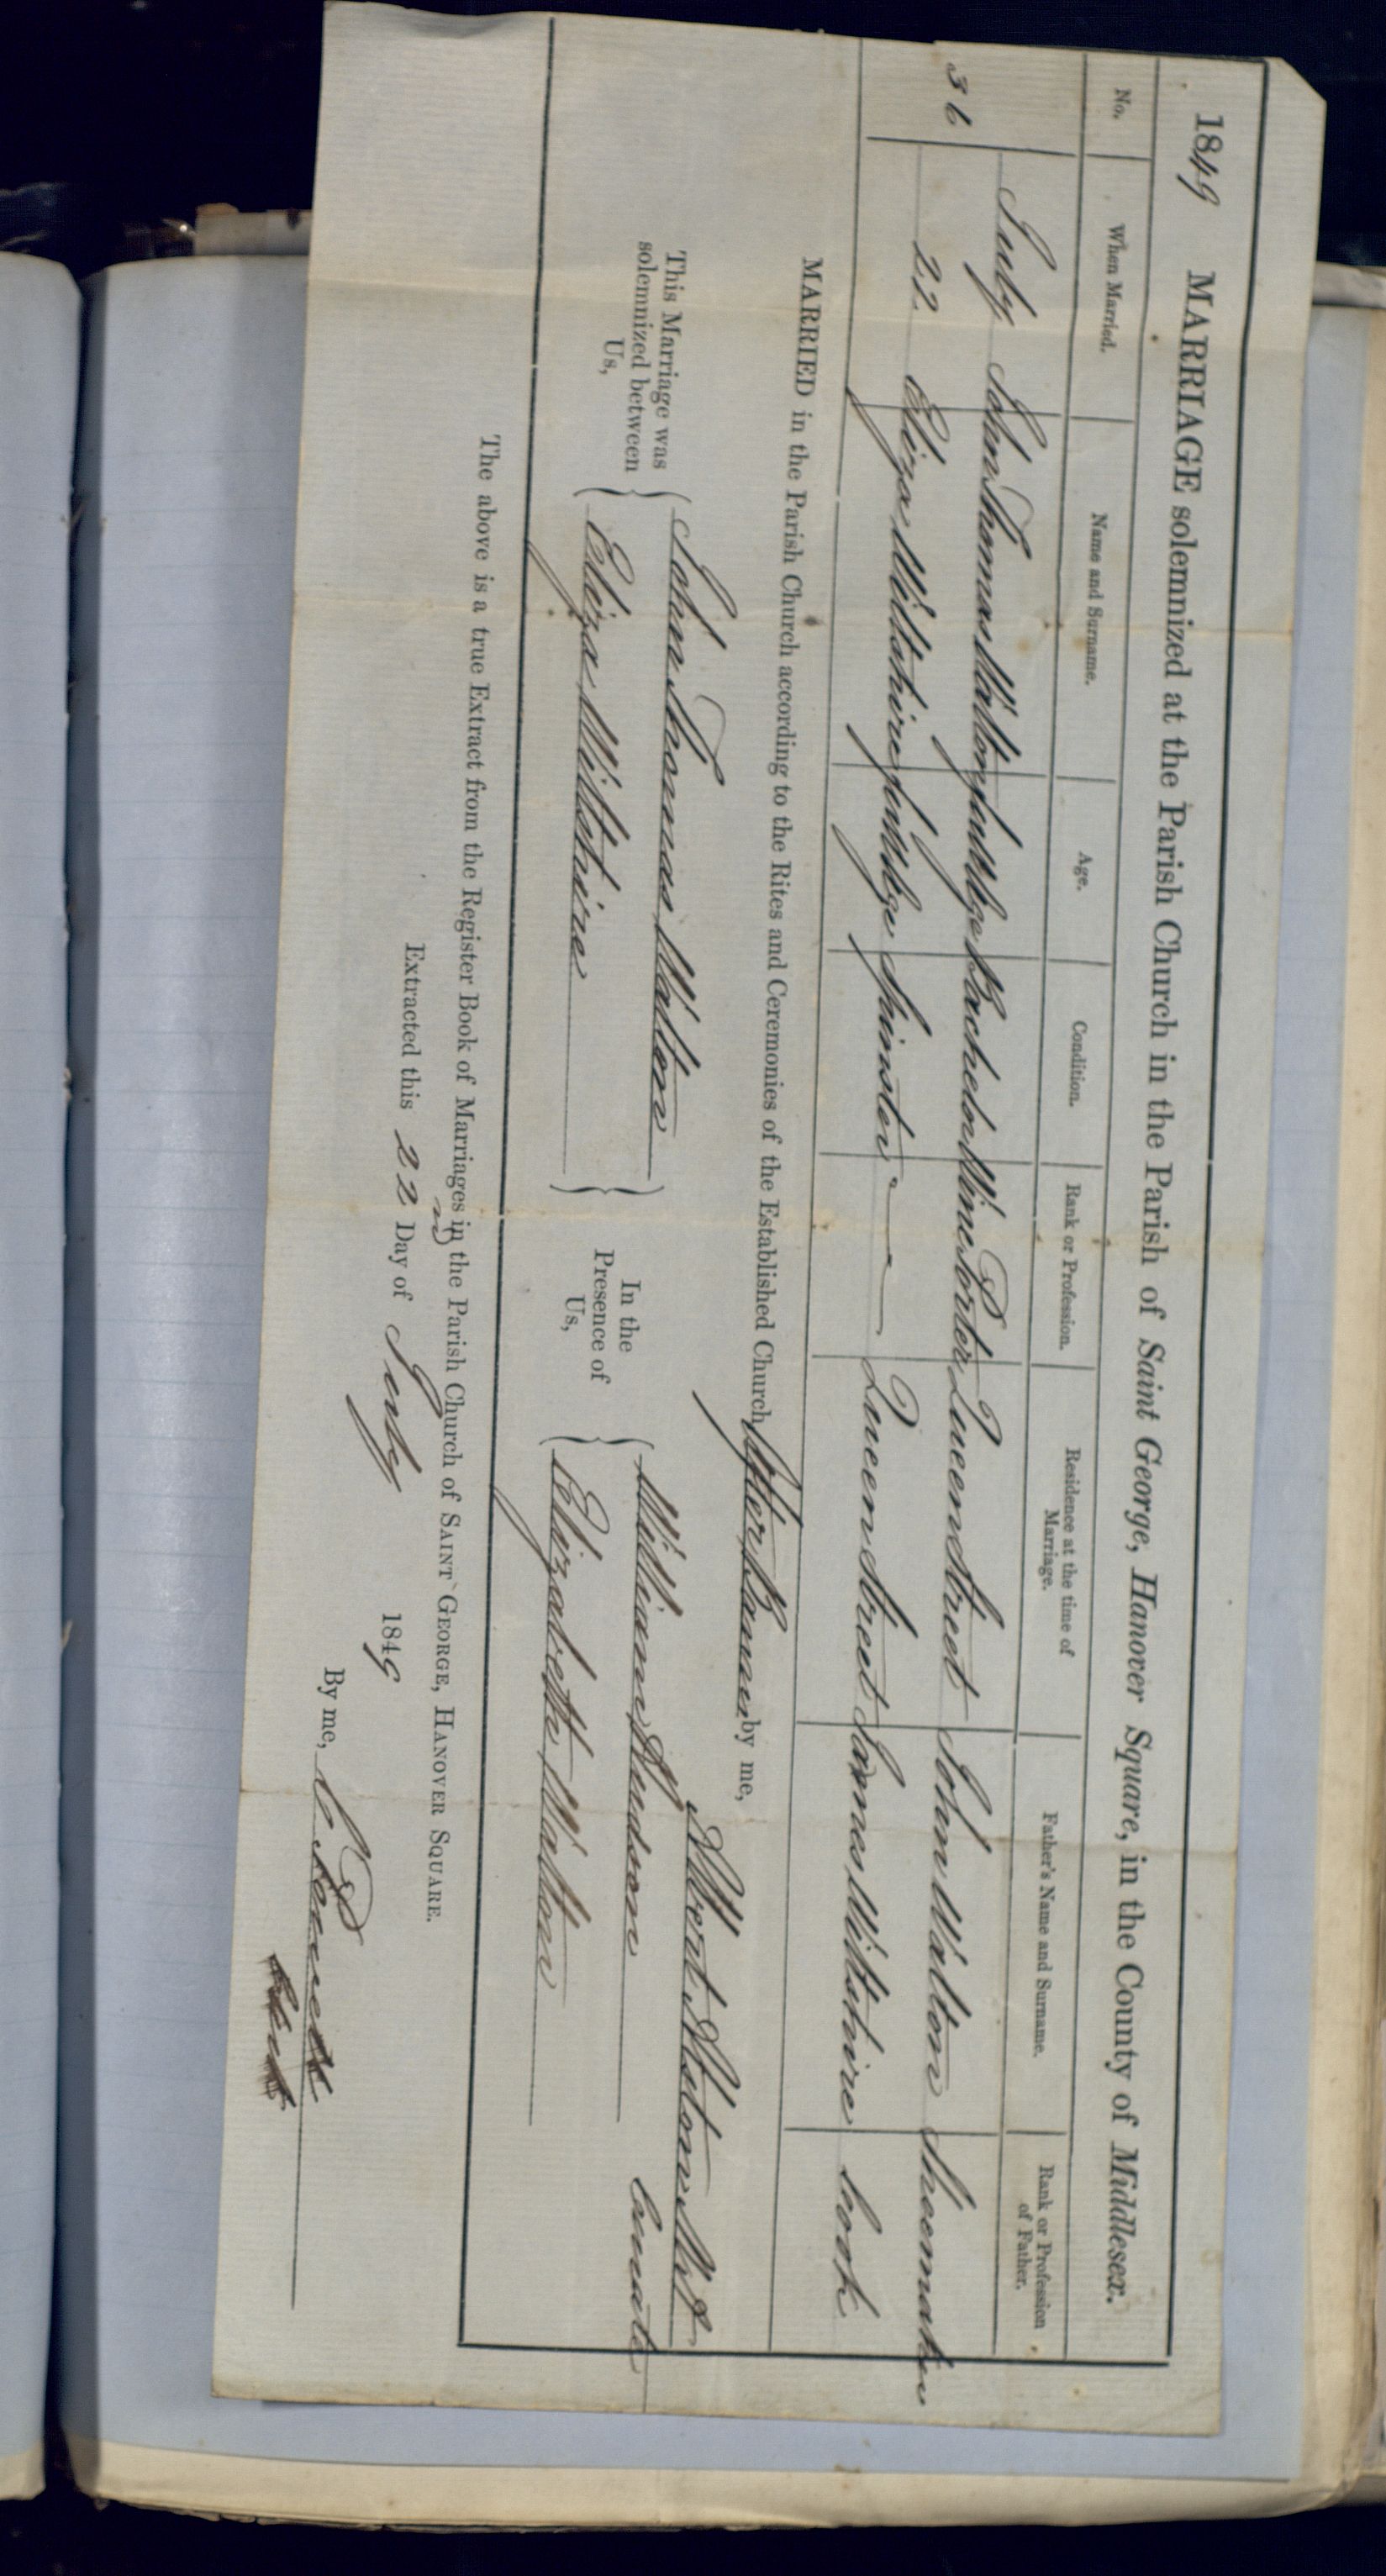 1849 MARRIAGE solemnized at the Parish Church in the Parish of Saint George, Hanover Square, in the County of Middlesex.
No. When Married. Name and Surname. Age. Condition. Rank or Profession. Residence at the time of Marriage. Father's Name and Surname. Rank or Profession of Father.
36 July John Thomas Walton full Age Bachelor Wine Porter Queen Street John Walton Shoemaker
22 Eliza Wiltshire full Age Spinster — Queen Street James Wiltshire Cook
MARRIED in the Parish Church according to the Rites and Ceremonies of the Established Church After Banns by me,
Albert Alston
Curate
This Marriage was solemnized between Us,
John Thomas Walton
Eliza Wiltshire
In the Presence of Us,
William Hudson
Elizabeth Walton
The above is a true Extract from the Register Book of Marriages in the Parish Church of SAINT GEORGE, HANOVER SQUARE.
Extracted this 22nd Day of July 1849
By me,